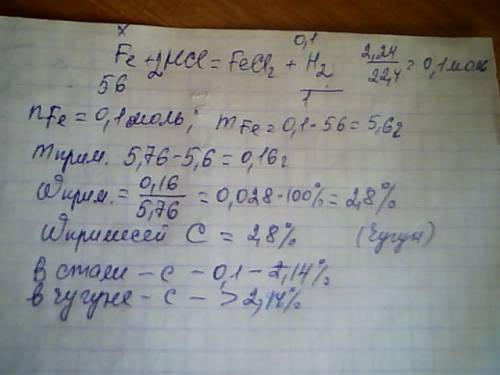 x 0,1
Fe + 2HCl = FeCl₂ + H₂ 2,24/22,4 = 0,1 мол
56 1
nFe = 0,1 моль; mFe = 0,1 · 56 = 5,6 г
mприм. 5,76 - 5,6 = 0,16 г
Wприм. = 0,16/5,76 = 0,028 · 100% = 2,8%
Wпримесей C = 2,8% (Чугун)
В стали - C - 0,1 - 2,14%
В чугуне - C - > 2,14%